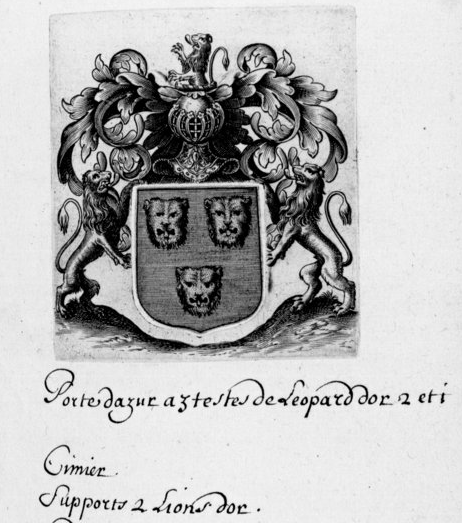 Porte dazur a 3 testes de Leopard dor 2 et i
Cimier.
Supports 2 Lions dor.